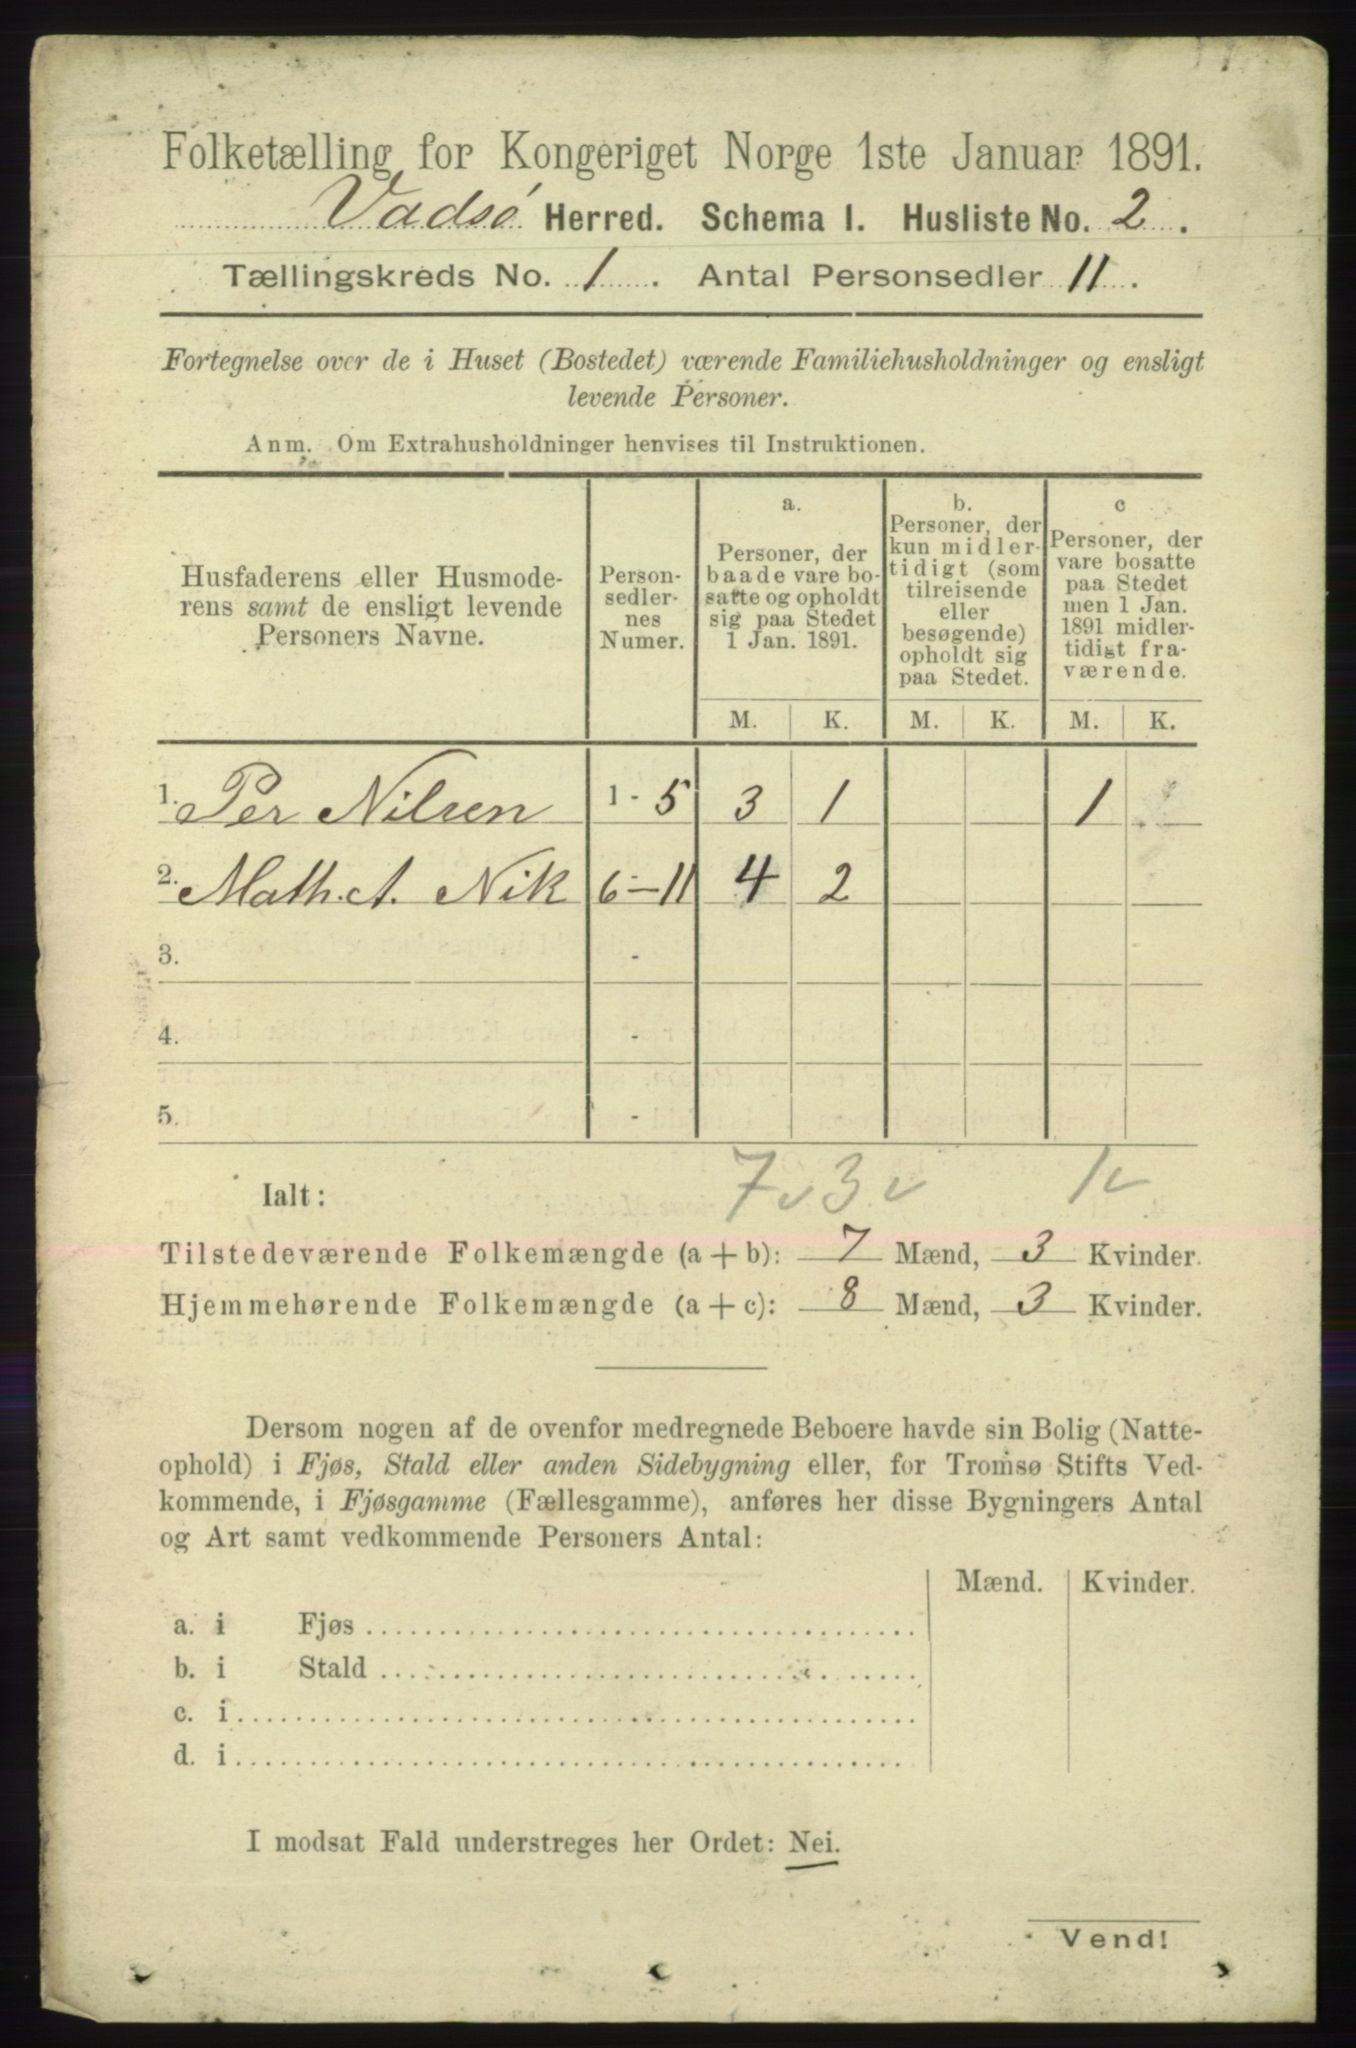 Folketælling for Kongeriget Norge 1ste Januar 1891.
Vadsø Herred. Schema I. Husliste No. 2.
Tællingskreds No. 1. Antal Personsedler 11.
Fortegnelse over de i Huset (Bostedet) værende Familiehusholdninger og ensligt
levende Personer.
Anm. Om Extrahusholdninger henvises til Instruktionen.
Husfaderens eller Husmode-
rens samt de ensligt levende
Personers Navne.
Person-
sedler-
nes
Numer.
a.
Personer, der
baade vare bo-
satte og opholdt
sig paa Stedet
1 Jan. 1891.
b.
Personer, der
kun midler-
tidigt (som
tilreisende
eller
besøgende)
opholdt sig
paa Stedet.
c
Personer, der
vare bosatte
paa Stedet
men 1 Jan.
1891 midler-
tidigt fra-
værende.
M. K. M. K. M. K.
1. Per Nilsen 1 - 5 3 1 1
2. Math. A. Nik 6 - 11 4 2
3. -
4. -
5. -
Ialt: 7 3 1
Tilstedeværende Folkemængde (a + b): 7 Mænd, 3 Kvinder.
Hjemmehørende Folkemængde (a + c): 8 Mænd, 3 Kvinder.
Dersom nogen af de ovenfor medregnede Beboere havde sin Bolig (Natte-
ophold) i Fjøs, Stald eller anden Sidebygning eller, for Tromsø Stifts Ved-
kommende, i Fjøsgamme (Fællesgamme), anføres her disse Bygningers Antal
og Art samt vedkommende Personers Antal:
Mænd. Kvinder.
a. i Fjøs
b. i Stald
c. i
d. i
I modsat Fald understreges her Ordet: Nei.
Vend!